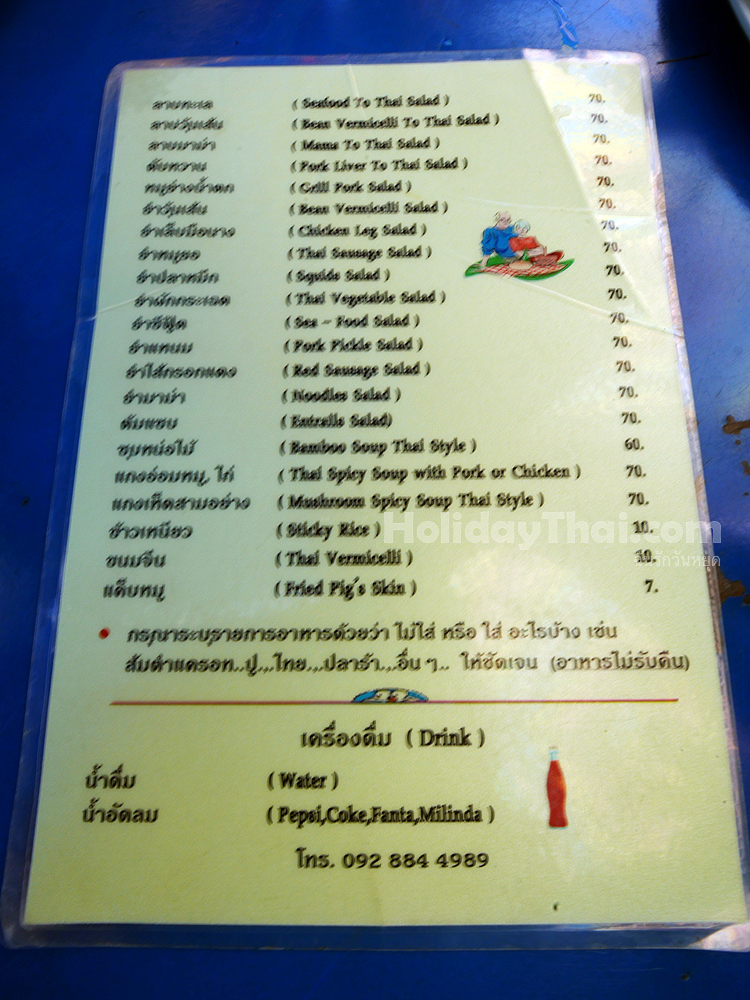 ลาบทะเล ( Seafood To Thai Salad ) 70.
ลาบวุ้นเส้น ( Bean Vermicelli To Thai Salad ) 70.
ลาบมาม่า ( Mama To Thai Salad ) 70.
ตับหวาน ( Pork Liver To Thai Salad ) 70.
หมูย่างน้ำตก ( Grill Pork Salad ) 70.
ยำวุ้นเส้น ( Bean Vermicelli Salad ) 70.
ยำเล็บมือนาง ( Chicken Leg Salad ) 70.
ยำหมูยอ ( Thai Sausage Salad ) 70.
ยำปลาหมึก ( Squids Salad ) 70.
ยำผักกระเฉด ( Thai Vegetable Salad ) 70.
ยำซีฟู๊ด ( Sea - Food Salad ) 70.
ยำแหนม ( Pork Pickle Salad ) 70.
ยำไส้กรอกแดง ( Red Sausage Salad ) 70.
ยำมาม่า ( Noodles Salad ) 70.
ต้มแซบ ( Entrails Salad) 70.
ซุบหน่อไม้ ( Bamboo Soup Thai Style ) 60.
แกงอ่อมหมู, ไก่ ( Thai Spicy Soup with Pork or Chicken ) 70.
แกงเห็ดสามอย่าง ( Mushroom Spicy Soup Thai Style ) 70.
ข้าวเหนียว ( Sticky Rice ) 10.
HolidayThai.com
ขนมจีน ( Thai Vermicelli ) 10.
แค็บหมู ( Fried Pig's Skin ) 7.
• กรุณาระบุรายการอาหารด้วยว่า ไม่ใส่ หรือ ใส่ อะไรบ้าง เช่น
ส้มตำแครอท..ปู...ไทย...ปลาร้า...อื่น ๆ.. ให้ชัดเจน (อาหารไม่รับคืน)
เครื่องดื่ม ( Drink )
น้ำดื่ม ( Water )
น้ำอัดลม ( Pepsi,Coke,Fanta,Milinda )
โทร. 092 884 4989